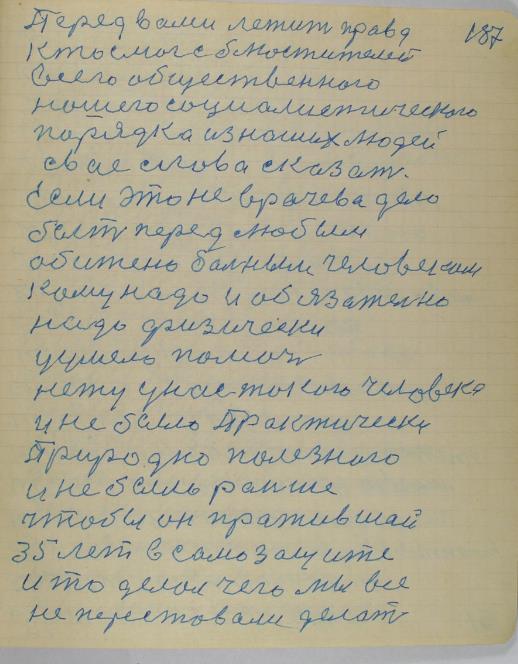 Перед вами лежит правд 187
Кто смог с блюстителей
Всего общественного
нашего социалистического
порядка из наших людей
свае слова сказат.
Если это не врачева дело
быт перед любым
обижено балным человеком
Кому надо и обязателно
надо физически
умело помоч
нету у нас токого человека
и не было Практически
Природно полезного
и не былъ ранше
чтобы он праживший
35 лет в самозащите
и то делал чего мы все
не перестовали делат